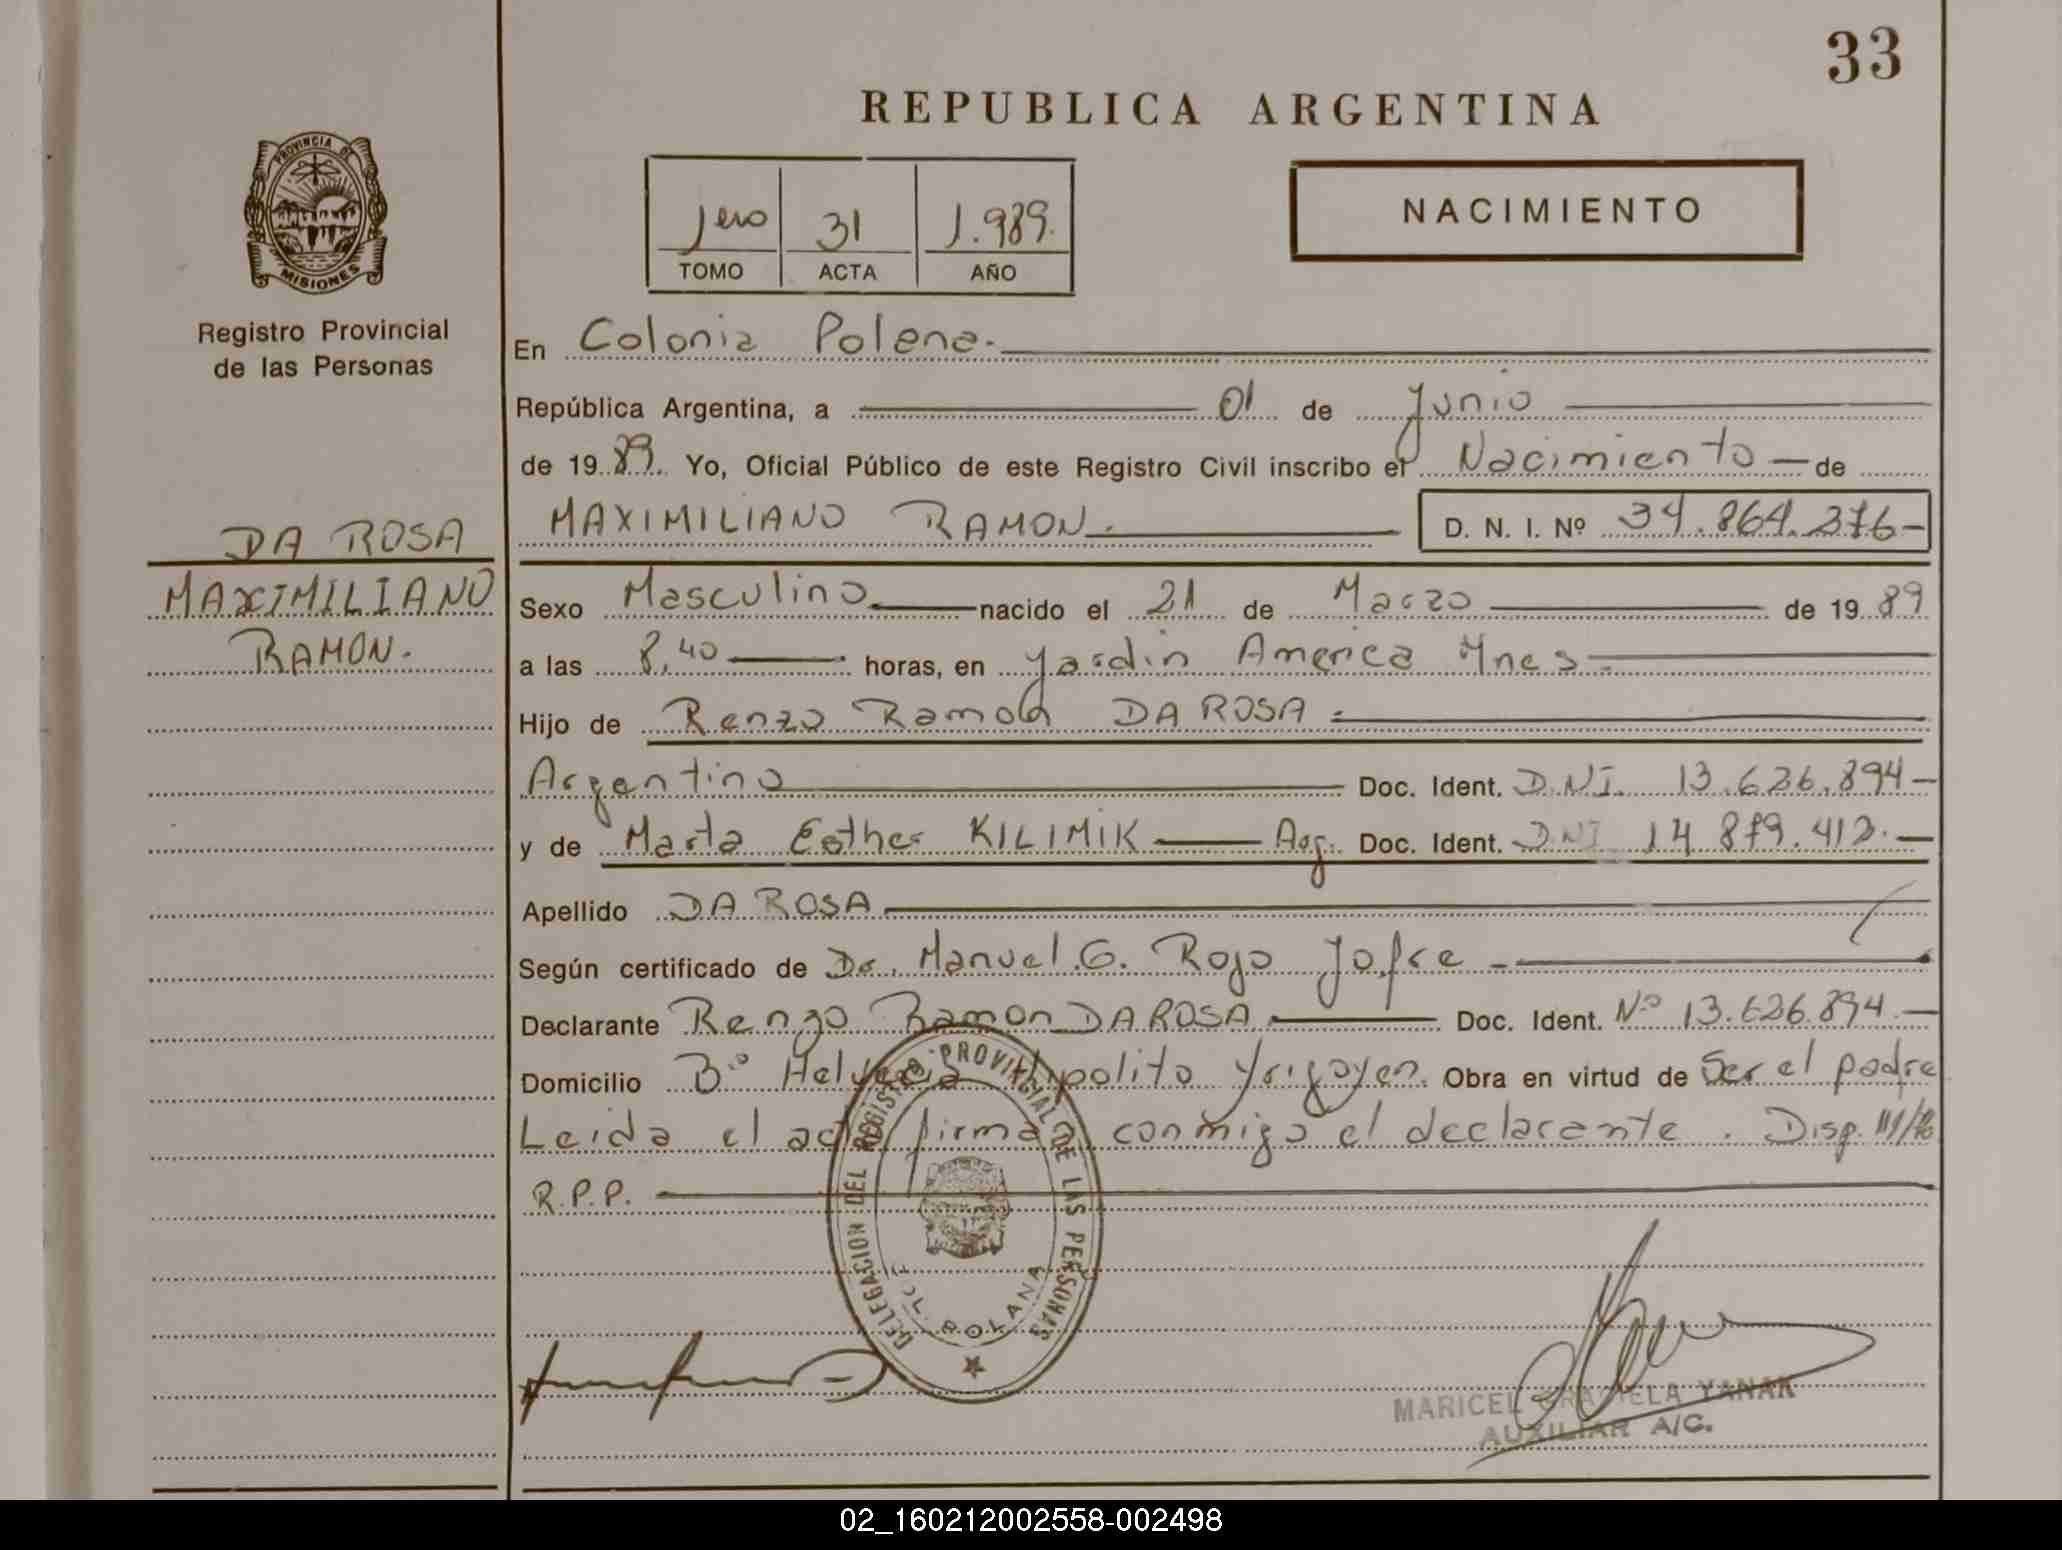 33
REPUBLICA ARGENTINA
PROVINCIA DE
MISIONES
Registro Provincial
de las Personas
1ero 31 1.989.
TOMO ACTA AÑO
NACIMIENTO
En Colonia Polana.
República Argentina, a 01 de Junio
de 1989. Yo, Oficial Público de este Registro Civil inscribo el Nacimiento de
DA ROSA
MAXIMILIANO
RAMON.
MAXIMILIANO RAMON. D. N. I. Nº 34.864.376
Sexo Masculino nacido el 21 de Marzo de 1989
a las 8,40 horas, en Jardin America Mnes.
Hijo de Renzo Ramon DA ROSA
Argentino Doc. Ident. D.N.I. 13.626.894
y de Marta Esther KILIMIK Arg. Doc. Ident. DNI 14.879.412.
Apellido DA ROSA
Según certificado de Dr. Manuel G. Rojo Jofre
Declarante Renzo Ramon DA ROSA Doc. Ident. Nº 13.626.894.
Domicilio Bº Helvecia Hipolito Yrigoyen. Obra en virtud de Ser el padre
Leida el acta firma conmigo el declarante. Disp.
R.P.P.
DELEGACION DEL REGISTRO PROVINCIAL DE LAS PERSONAS
MARICEL GRACIELA YANAK
AUXILIAR A/C.
02_160212002558-002498